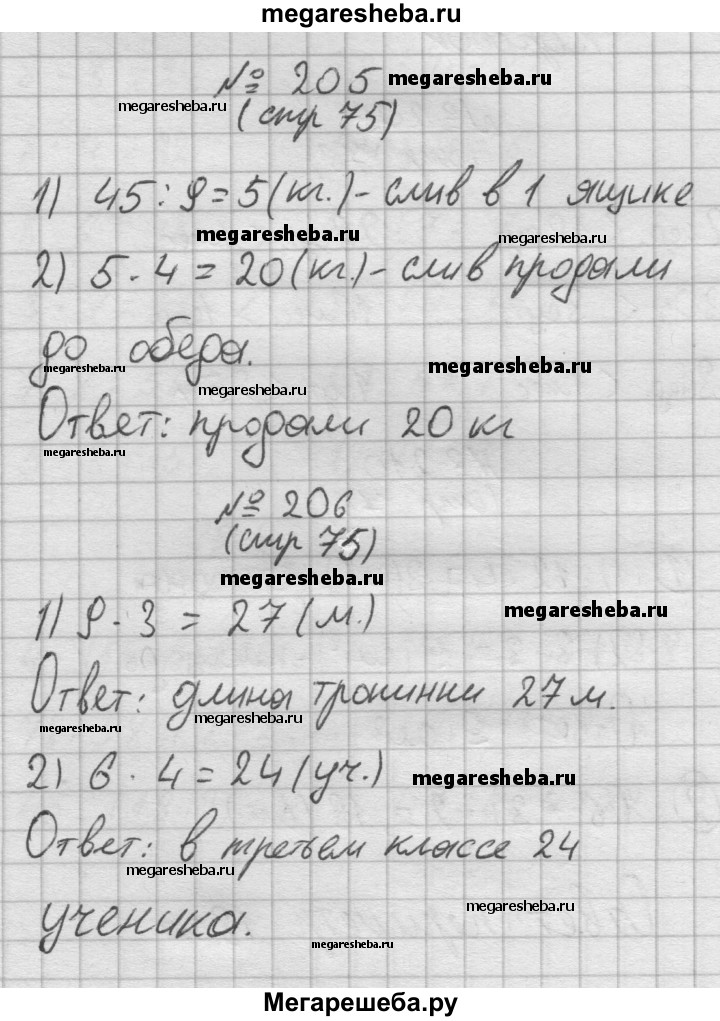 megaresheba.ru
№ 205 megaresheba.ru
megaresheba.ru (стр 75)
1) 45 : 9 = 5 (кг.) - слив в 1 ящике
megaresheba.ru megaresheba.ru
2) 5 · 4 = 20 (кг.) - слив продали
до обеда.
megaresheba.ru megaresheba.ru
megaresheba.ru
Ответ: продали 20 кг
megaresheba.ru
№ 206
(стр 75)
megaresheba.ru
1) 9 · 3 = 27 (м.) megaresheba.ru
Ответ: длина тропинки 27 м.
megaresheba.ru megaresheba.ru
2) 6 · 4 = 24 (уч.) megaresheba.ru
Ответ: в третьем классе 24
megaresheba.ru
ученика. megaresheba.ru
megaresheba.ru
Мегарешеба.ру